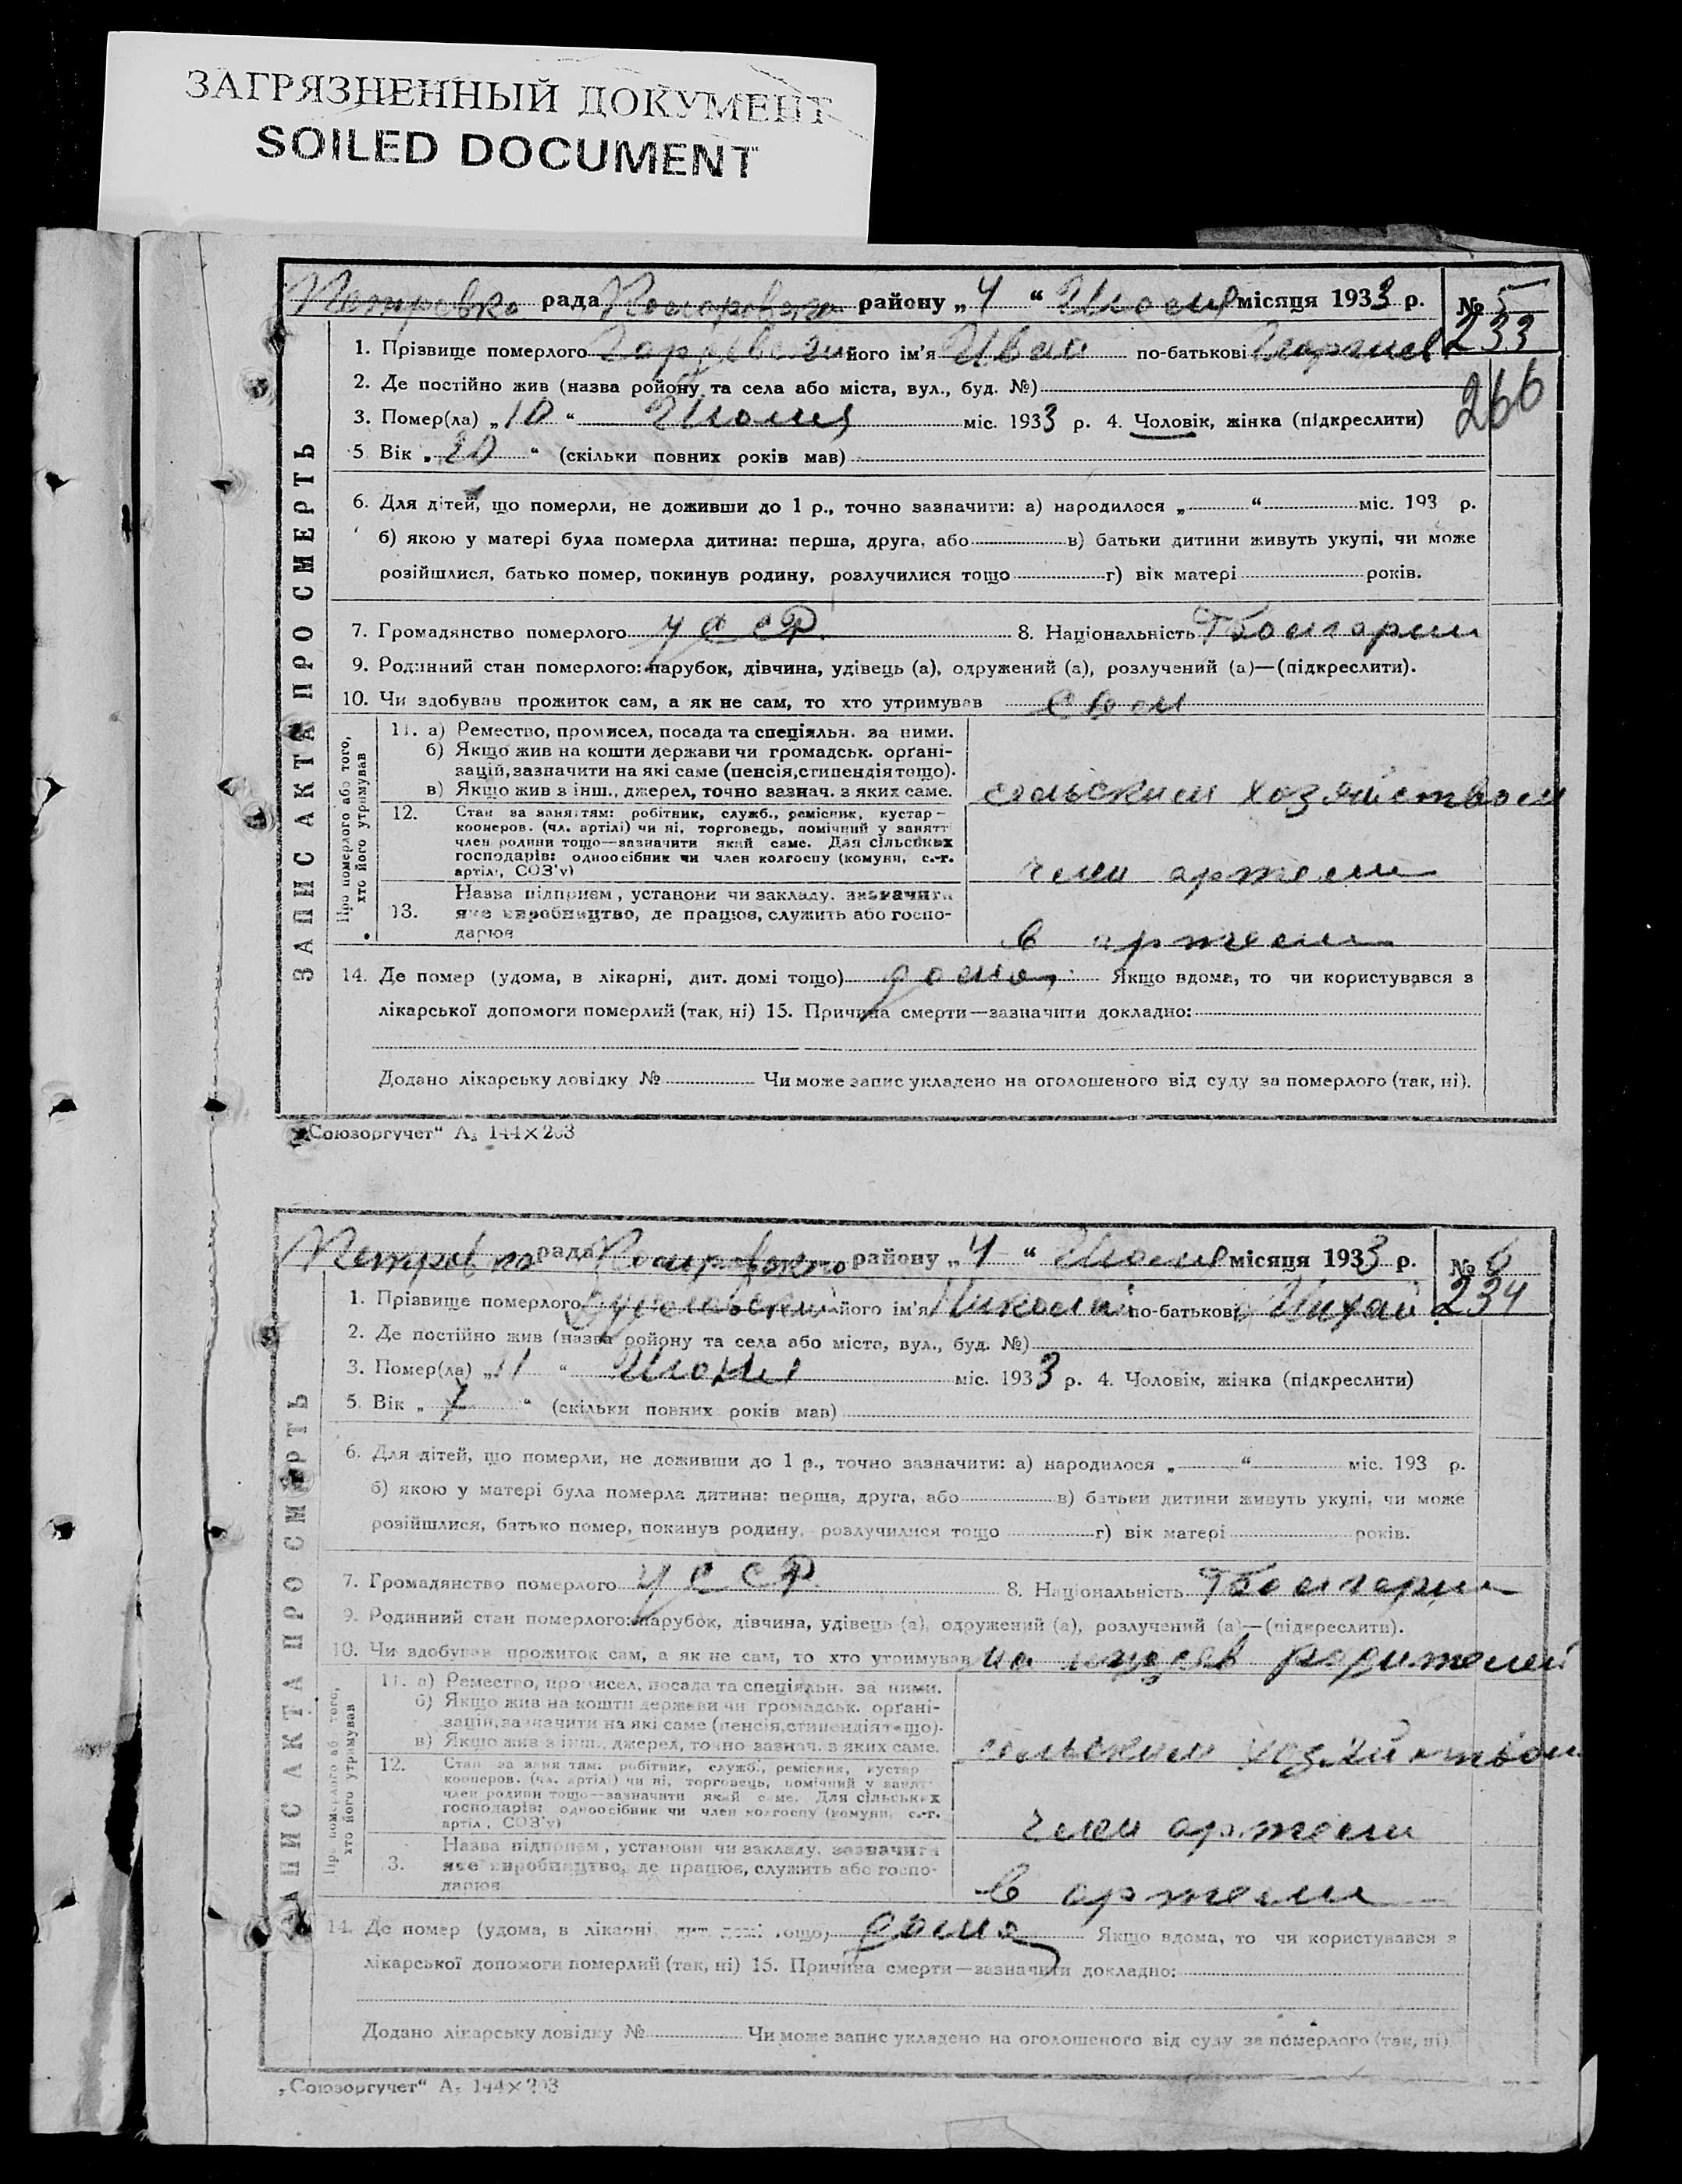 ЗАГРЯЗНЕННЫЙ ДОКУМЕНТ
SOILED DOCUMENT
Петровка рада району „4“ місяця 1933 р. № 5
233
1. Прізвище померлого його ім'я Иван по-батькові
266
2. Де постійно жив (назва ройону та села або міста, вул., буд. №)
3. Помер(ла) „10“ міс. 1933 р. 4. Чоловік, жінка (підкреслити)
5 Вік „20“ (скільки повних років мав)
6. Для дітей, що померли, не доживши до 1 р., точно зазначити: а) народилося „ “ міс. 193 р.
б) якою у матері була померла дитина: перша, друга, або в) батьки дитини живуть укупі, чи може
розійшлися, батько помер, покинув родину, розлучилися тощо г) вік матері років.
7. Громадянство померлого УССР. 8. Національність
9. Родинний стан померлого: парубок, дівчина, удівець (а), одружений (а), розлучений (а)—(підкреслити).
10. Чи здобував прожиток сам, а як не сам, то хто утримував
ЗАПИС АКТА ПРО СМЕРТЬ
Про померлого або того,
хто його утримував
11. а) Ремество, промисел, посада та спеціяльн. за ними.
б) Якщо жив на кошти держави чи громадськ. орґані-
зацій, зазначити на які саме (пенсія, стипендія тощо).
в) Якщо жив з інш., джерел, точно зазнач. з яких саме.
сельским хозяйством
12. Стан за заняттям: робітник, служб., ремісник, кустар—
кооперов. (чл. артілі) чи ні, торговець, помічний у занятт
член родини тощо—зазначити який саме. Для сільських
господарів: одноосібник чи член колгоспу (комуни, с.-г.
артілі, СОЗ'у)
член артели
13. Назва підприєм, установи чи закладу, зазначити
яке виробництво, де працює, служить або госпо-
дарює
в артели
14. Де помер (удома, в лікарні, дит. домі тощо) дома Якщо вдома, то чи користувався з
лікарської допомоги померлий (так, ні) 15. Причина смерти—зазначити докладно:
Додано лікарську довідку № Чи може запис укладено на оголошеного від суду за померлого (так, ні).
„Союзоргучет“ А₅ 144×203
Петровка рада району „4“ місяця 1933 р. № 6
234
1. Прізвище померлого його ім'я Николай по-батькові Михай
2. Де постійно жив (назва ройону та села або міста, вул., буд. №)
3. Помер(ла) „11“ Июня міс. 1933 р. 4. Чоловік, жінка (підкреслити)
5. Вік „7“ (скільки повних років мав)
6. Для дітей, що померли, не доживши до 1 р., точно зазначити: а) народилося „ “ міс. 193 р.
б) якою у матері була померла дитина: перша, друга, або в) батьки дитини живуть укупі, чи може
розійшлися, батько помер, покинув родину, розлучилися тощо г) вік матері років.
7. Громадянство померлого УССР. 8. Національність
9. Родинний стан померлого: парубок, дівчина, удівець (а), одружений (а), розлучений (а)—(підкреслити).
10. Чи здобував прожиток сам, а як не сам, то хто утримував на родителей
ЗАПИС АКТА ПРО СМЕРТЬ
Про померлого або того,
хто його утримував
11. а) Ремество, промисел, посада та спеціяльн. за ними.
б) Якщо жив на кошти держави чи громадськ. орґані-
зацій, зазначити на які саме (пенсія, стипендія тощо).
в) Якщо жив з інш., джерел, точно зазнач. з яких саме.
сельским хозяйством
12. Стан за заняттям: робітник, служб., ремісник, кустар
кооперов. (чл. артілі) чи ні, торговець, помічний у занят
член родини тощо—зазначити який саме. Для сільських
господарів: одноосібник чи член колгоспу (комуни, с.-г.
артіл, СОЗ'у)
член артели
3. Назва підприєм, установи чи закладу, зазначити
яке виробництво, де працює, служить або госпо-
дарює
в артели
14. Де помер (удома, в лікарні, дит. домі тощо) дома Якщо вдома, то чи користувався з
лікарської допомоги померлий (так, ні) 15. Причина смерти—зазначити докладно:
Додано лікарську довідку № Чи може запис укладено на оголошеного від суду за померлого (так, ні)
„Союзоргучет“ А₅ 144×203